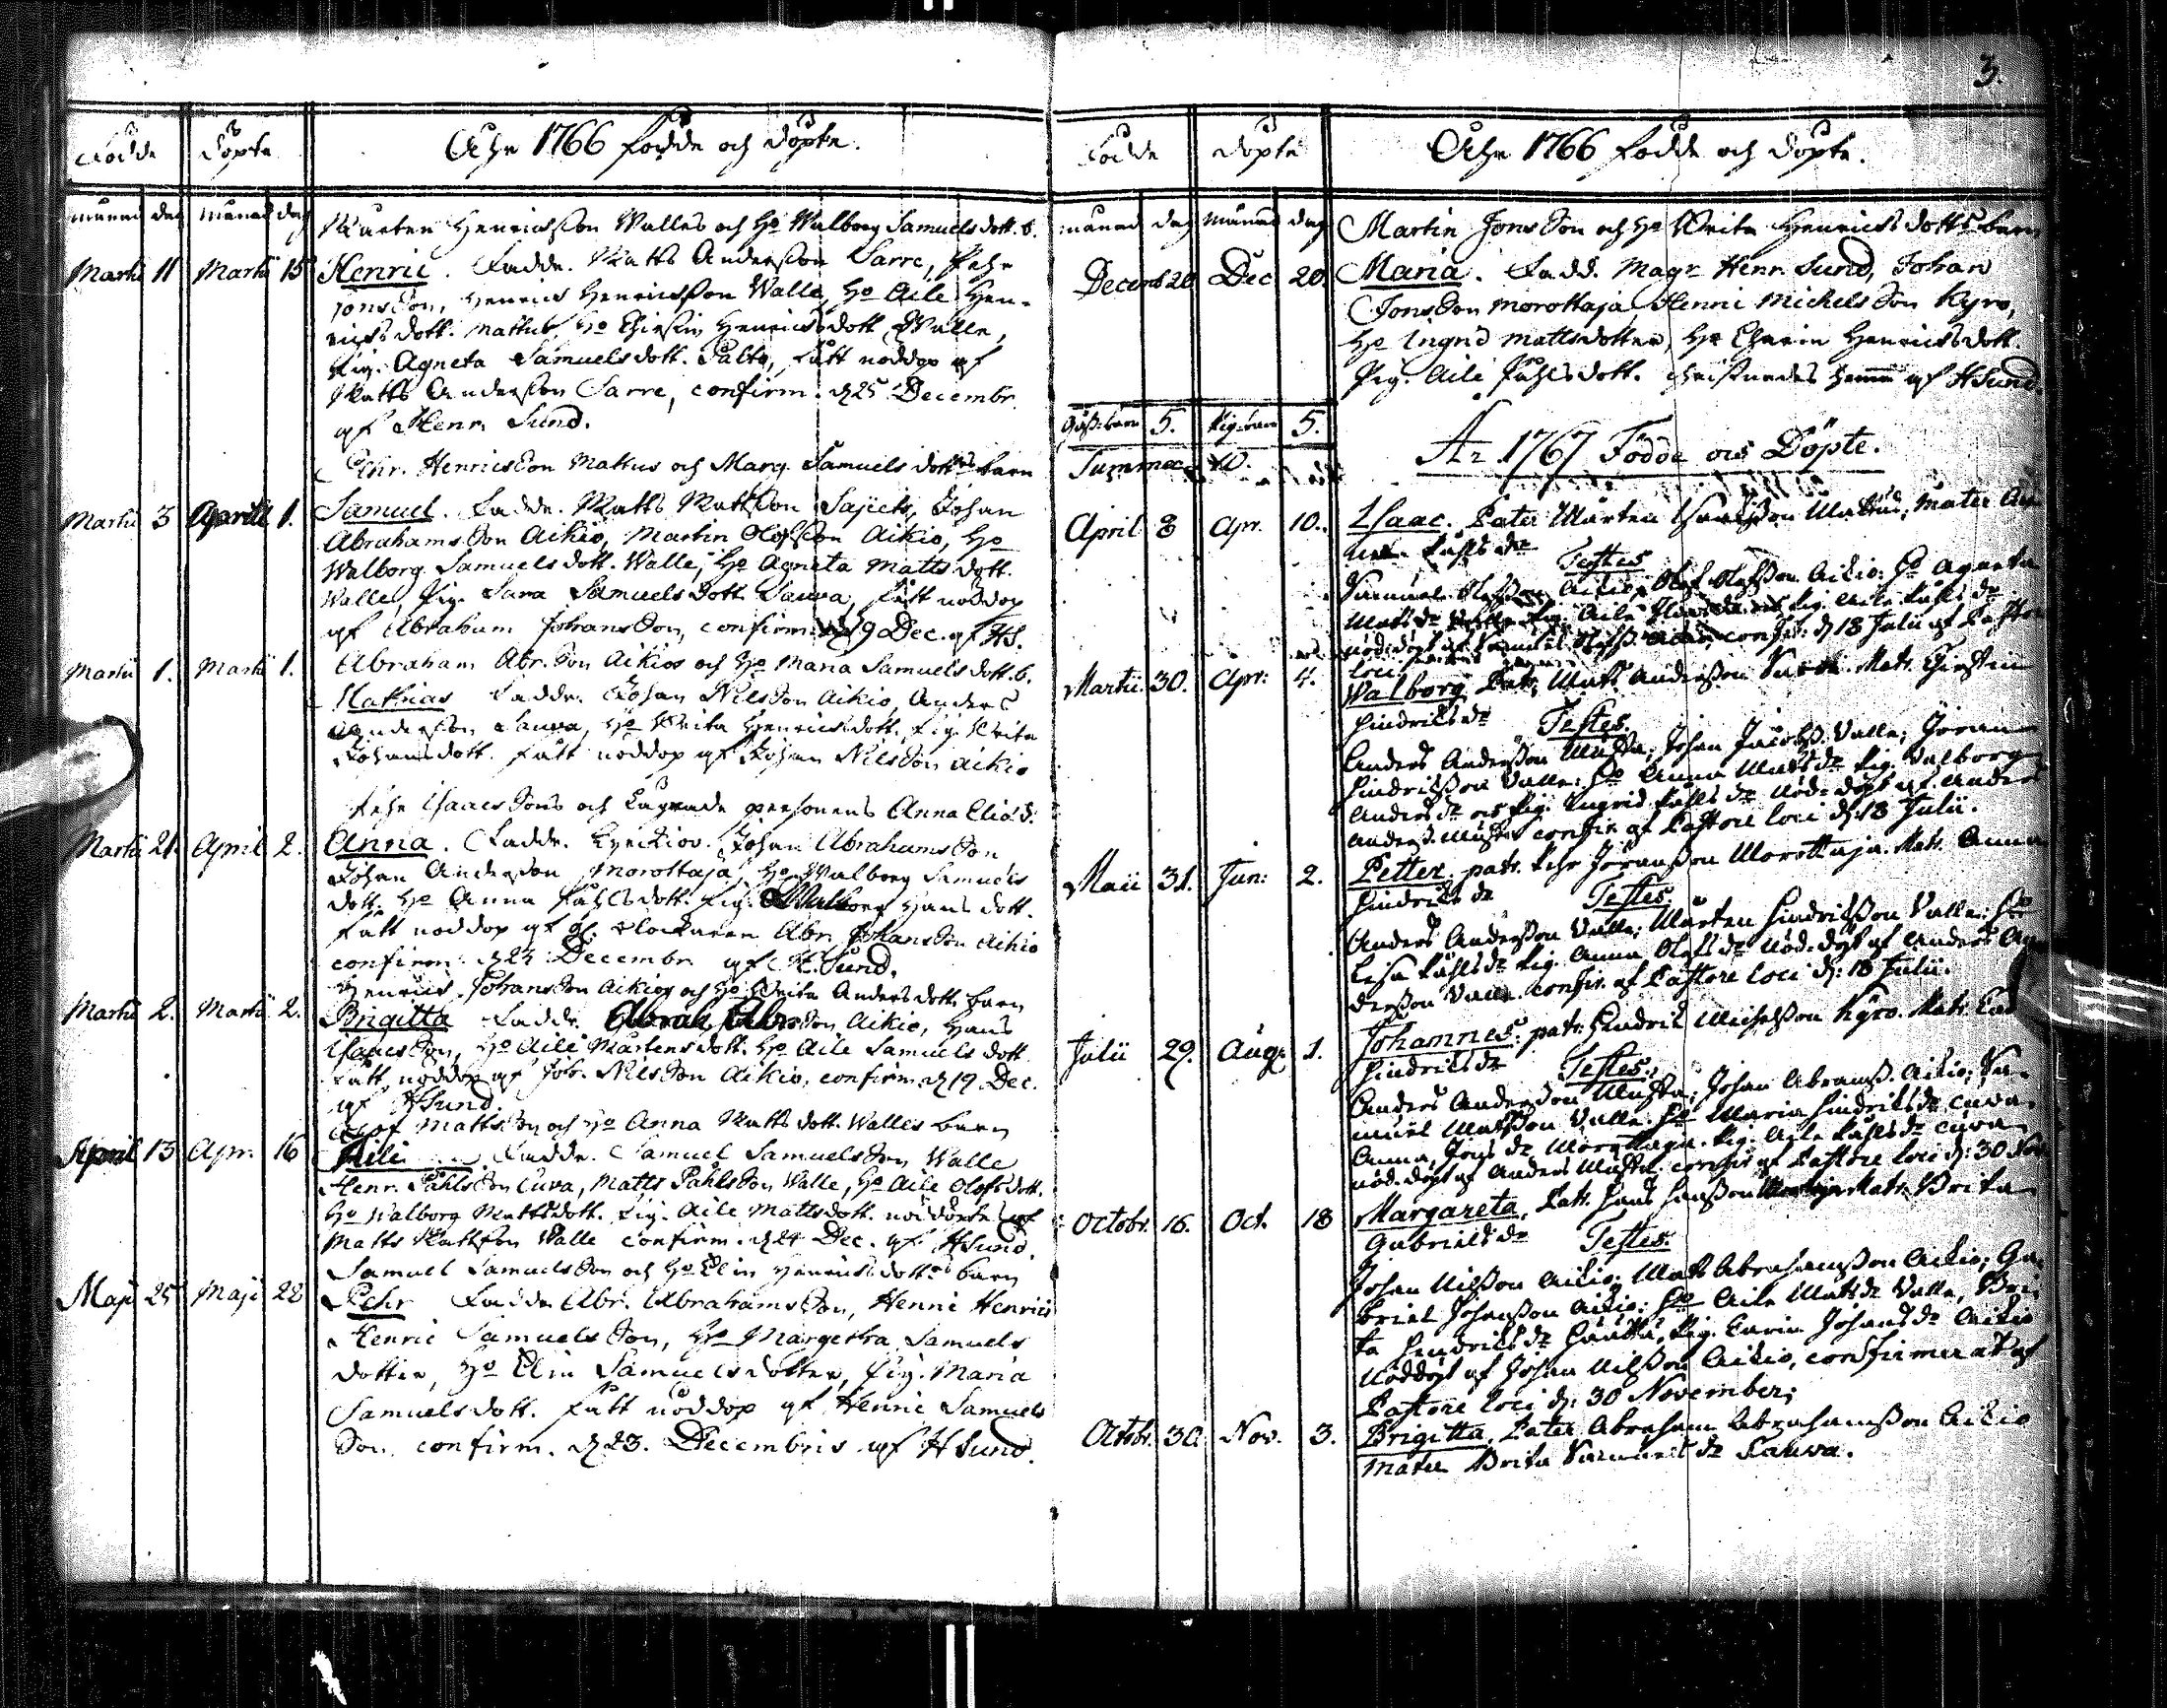 Födde
Döpte
Åhr 1766 födde och döpte.
månad dag månad dag
Mårten Henricsson Walles och Ho Walborg Samuelsdott. b.
Martii 11 Martii 15 Henric. Fadd. Matts Andersson Sarre, Pehr
Jonsson, Henric Henricsson Walle, Ho Aile Hen-
ricsdott. Mattus, Ho Chirstin Henricsdott Walle,
Pig. Agneta Samuelsdott. Salto, fått nöddop af
Matts Andersson Sarre, confirm. d 25 Decembr.
af Henr. Sund.
Pehr. Henricsson Mattus och Marg. Samuels dotts barn
Martii 3 Aprill 1. Samuel. Fadd. Matts Mattsson Sajiets, Johan
Abrahamsson Aikio, Martin Olofsson Aikio, Ho
Walborg Samuelsdott. Walle, Ho Agneta Mattsdott.
Walle, Pig. Sara Samuelsdott. Sauva, fått nöddop
af Abraham Johansson, confirm. d 19 Dec. af HS.
Martii 1. Martii 1. Abraham Abr.son Aikios och Ho Maria Samuelsdott. b.
Mathias Fadd. Johan Nilsson Aikio, Anders
Andersson Sauva, Ho Brita Henricsdott. Pig. Brita
Johansdott. fått nöddop af Johan Nilsson Aikio
Pehr Isaacssons och Lägrade personens Anna Eliæ d.
Martii 21. April 2. Anna. Fadd. Johan Abrahamsson
Johan Andersson Morottaja, Ho Walborg Samuels
dott. Ho Anna Påhlsdott. Pig. Walborg Hansdott.
fått nöddop af klockaren Abr. Johansson Aikio
confirm. d 23 Decembr. af H. Sund.
Henrics Johansson Aikios och Ho Brita Andersdotts barn
Martii 2. Martii 2. Brigitta Fadd. Abrah. Abrsson Aikio, Hans
Isaacsson, Ho Aile Mårtensdott. Ho Aile Samuelsdott
fått nöddop af Joh. Nilsson Aikio, confirm. d 19 Dec.
af HSund
Olof Mattsson och Ho Anna Mattsdott. Walles barn
April 13 Apr. 16 Aili. Fadd. Samuel Samuelsson Walle
Henr. Påhlsson Cuva, Matts Påhlsson Walle, Ho Aile Olofsdott.
Ho Walborg Mattsdott. Pig. Aile Mattsdott. nöddöpte af
Matts Mattsson Walle confirm. d 24 Dec. af HSund.
Samuel Samuelsson och Ho Elin Henricsdotts barn
Maji 25 Maji 28 Pehr Fadd. Abr. Abrahamsson, Henric Henrics
Henric Samuelsson, Ho Margetha Samuels
dotter, Ho Elin Samuelsdotter, Pig. Maria
Samuelsdott. fått nöddop af Henric Samuels
son. confirm. d 23. Decembris af HSund.
3.
Födde
Döpte
Åhr 1766 födde och döpte.
månad dag månad dag
Martin Jonsson och Ho Brita Henricsdotts barn
Decemb 20 Dec 20. Maria. Fadd. Magr Henr. Sund, Johan
Jonsson Morottaja, Henric Michelsson Kyrö,
Ho Ingrid Mattsdotter, Ho Charin Henricsdott.
Pig. Aile Påhlsdott. christnades hemma af HSund.
Gåss.barn 5. Pig.barn 5.
Summa 10.
Ar 1767 Födde och Döpte.
April 8 Apr. 10. Isaac. Pater Mårten Isaacsson Mattus, Mater
Påhlsdr
Testes
Samuel Olofsson Aikio, Olof Olofsson Aikio, Ho Agneta
Matsdr Pig. Aile Pig. Aile Påhlsdr
nöd.döpt af Samuel Olofss. Aikio, confir: d 18 Julii af Pastore
loci.
Martii 30. Apr: 4. Walborg Patr. Matts Andersson Mater. Chirstin
Hindricsdr
Testes
Anders Andersson Musta, Johan Jacobss. Valle, Jöran
Hindricsson Valle: Ho Anna Matsdr Pig. Valborg
Andersdr och Pig. Ingrid Påhlsdr nöd: döpt af Anders
Anderss. Musta confir. af Pastore loci d: 18 Julii.
Maii 31. Jun: 2. Petter. patr. Pehr Jöransson Morottaja. Matr. Anna
Hindricsdr
Testes.
Anders Andersson Valle, Mårten Hindricsson Valle: Ho
Lisa Påhlsdr Pig. Anna Olofsdr nöd.döpt af Anders An-
dersson Valle. confir. af Pastore loci d: 18 Julii.
Julii 29. Aug: 1. Johannes. patr. Hindric Michelsson Kyrö. Matr.
Hindricsdr
Testes.
Anders Andersson Musta, Johan Abramss. Aikio, Sa-
muel Matsson Valle. Ho Maria Hindricsdr Cuva.
Anna, Jonsdr Morottaja. Pig. Aile Påhlsdr Cuva
nöd.döpt af Anders Musta. confir af Pastore loci d: 30 Nov.
Octobr. 16. Oct. 18 Margareta, Patr. Hans Hansson Matr. Brita
Gabrielsdr
Testes.
Johan Nilsson Aikio; Mats Abrahamsson Aikio; Ga-
briel Johansson Aikio: Ho Aile Matsdr Valle, Bri-
ta Hendricsdr Pig. Carin Johansdr Aikio
nöddöpt af Johan Nilsson Aikio, confirmerat af
Pastore loci d: 30 November;
Octobr. 30. Nov. 3. Brigitta, Pater Abraham Abrahamsson Aikio
Mater Brita Samuelsdr Sauva.